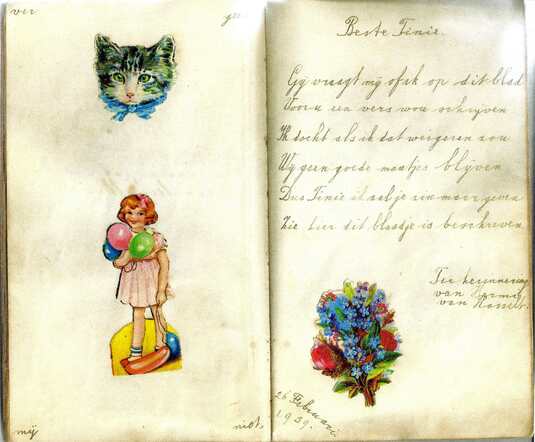 ver
mij
niet
Beste Tinie.
Gij vraagt mij of ik op dit blad
Voor u een vers wou schrijven
Ik docht als ik dat weigeren zou
Wij geen goede maatjes blijven
Dus Tinie ik zal je zin maar geven
Zie hier dit blaadje is beschreven
Ter herinnering
van
van
26 Februari
1939.